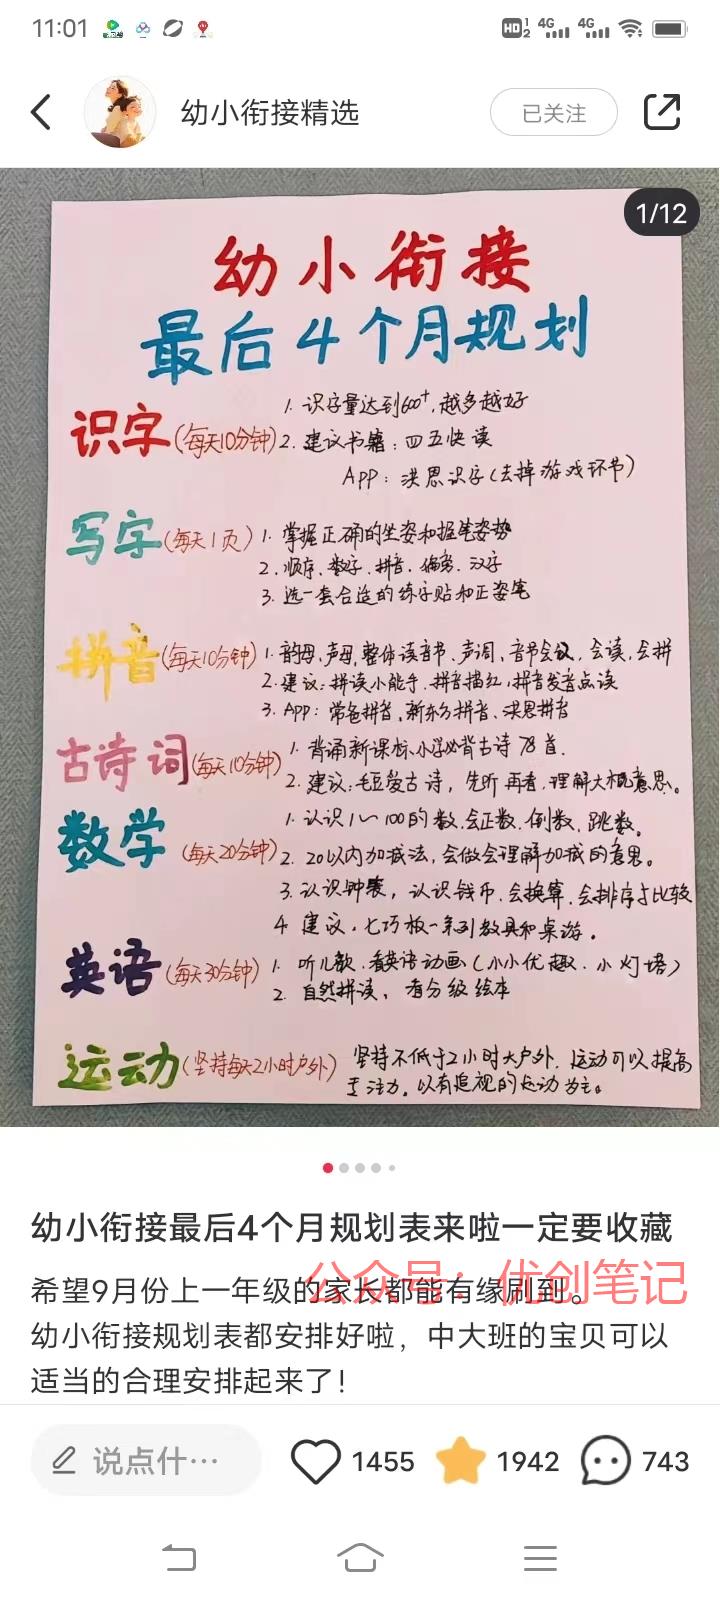 11:01
HD 1 2 4G 4G
幼小衔接精选
已关注
1/12
幼小衔接
最后4个月规划
识字(每天10分钟)
1. 识字量达到600+,越多越好
2. 建议书籍:四五快读
App:洪恩识字(去掉游戏环节)
写字(每天1页)
1. 掌握正确的坐姿和握笔姿势
2. 顺序、数字、拼音、偏旁、汉字
3. 选一套合适的练字贴和正姿笔
拼音(每天10分钟)
1. 韵母、声母、整体读音节、声调、音节会认、会读、会拼
2. 建议:拼读小能手、拼音描红、拼音发音点读
3. App:常爸拼音、新东方拼音、洪恩拼音
古诗词(每天10分钟)
1. 背诵新课标小学必背古诗78首.
2. 建议:毛豆爱古诗,先听再看,理解大概意思。
数学(每天20分钟)
1. 认识1~100的数.会正数、倒数、跳数。
2. 20以内加减法,会做会理解加减的意思。
3. 认识钟表,认识钱币.会换算.会排序与比较
4 建议.七巧板一系列教具和桌游.
英语(每天30分钟)
1. 听儿歌.看英语动画(小小优趣.小灯塔)
2. 自然拼读,看分级绘本
运动(坚持每天2小时户外)
坚持不低于2小时大户外.运动可以提高
活力.以有追视的运动为主。
幼小衔接最后4个月规划表来啦一定要收藏
希望9月份上一年级的家长都能有缘刷到。
公众号:优创笔记
幼小衔接规划表都安排好啦,中大班的宝贝可以
适当的合理安排起来了!
说点什…
1455
1942
743